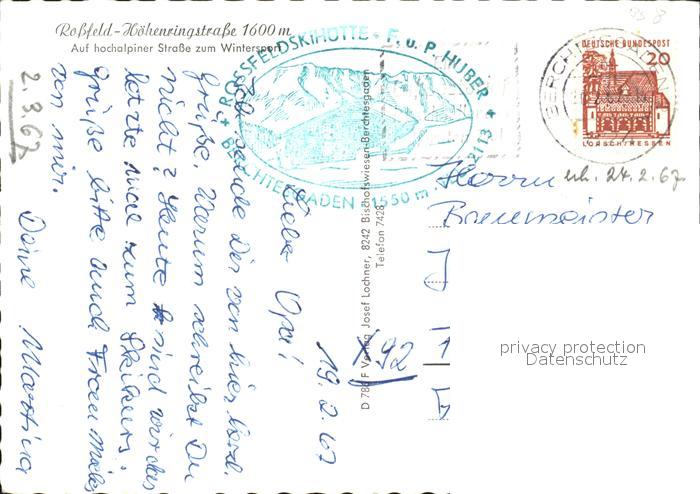 Roßfeld-Höhenringstraße 1600 m
Auf hochalpiner Straße zum Wintersport
ROSSFELDSKIHÜTTE - F. u. P. HUBER
BERCHTESGADEN 1550 m
2113
BERCHTESGADEN
DEUTSCHE BUNDESPOST
20
LORSCH/HESSEN
erh. 24.2.67
Herrn
Braumeister
privacy protection
Datenschutz
D 788 F Verlag Josef Lochner, 8242 Bischofswiesen-Berchtesgaden
Telefon 7428
X 92
19.2.67
Lieber Opa!
Ich sende Dir von hier herzl.
Grüße. Warum schreibst Du
nicht? Heute sind wir das
letzte mal zum Skikurs.
Grüße bitte auch Frau
von mir.
Deine Martina
2.3.67